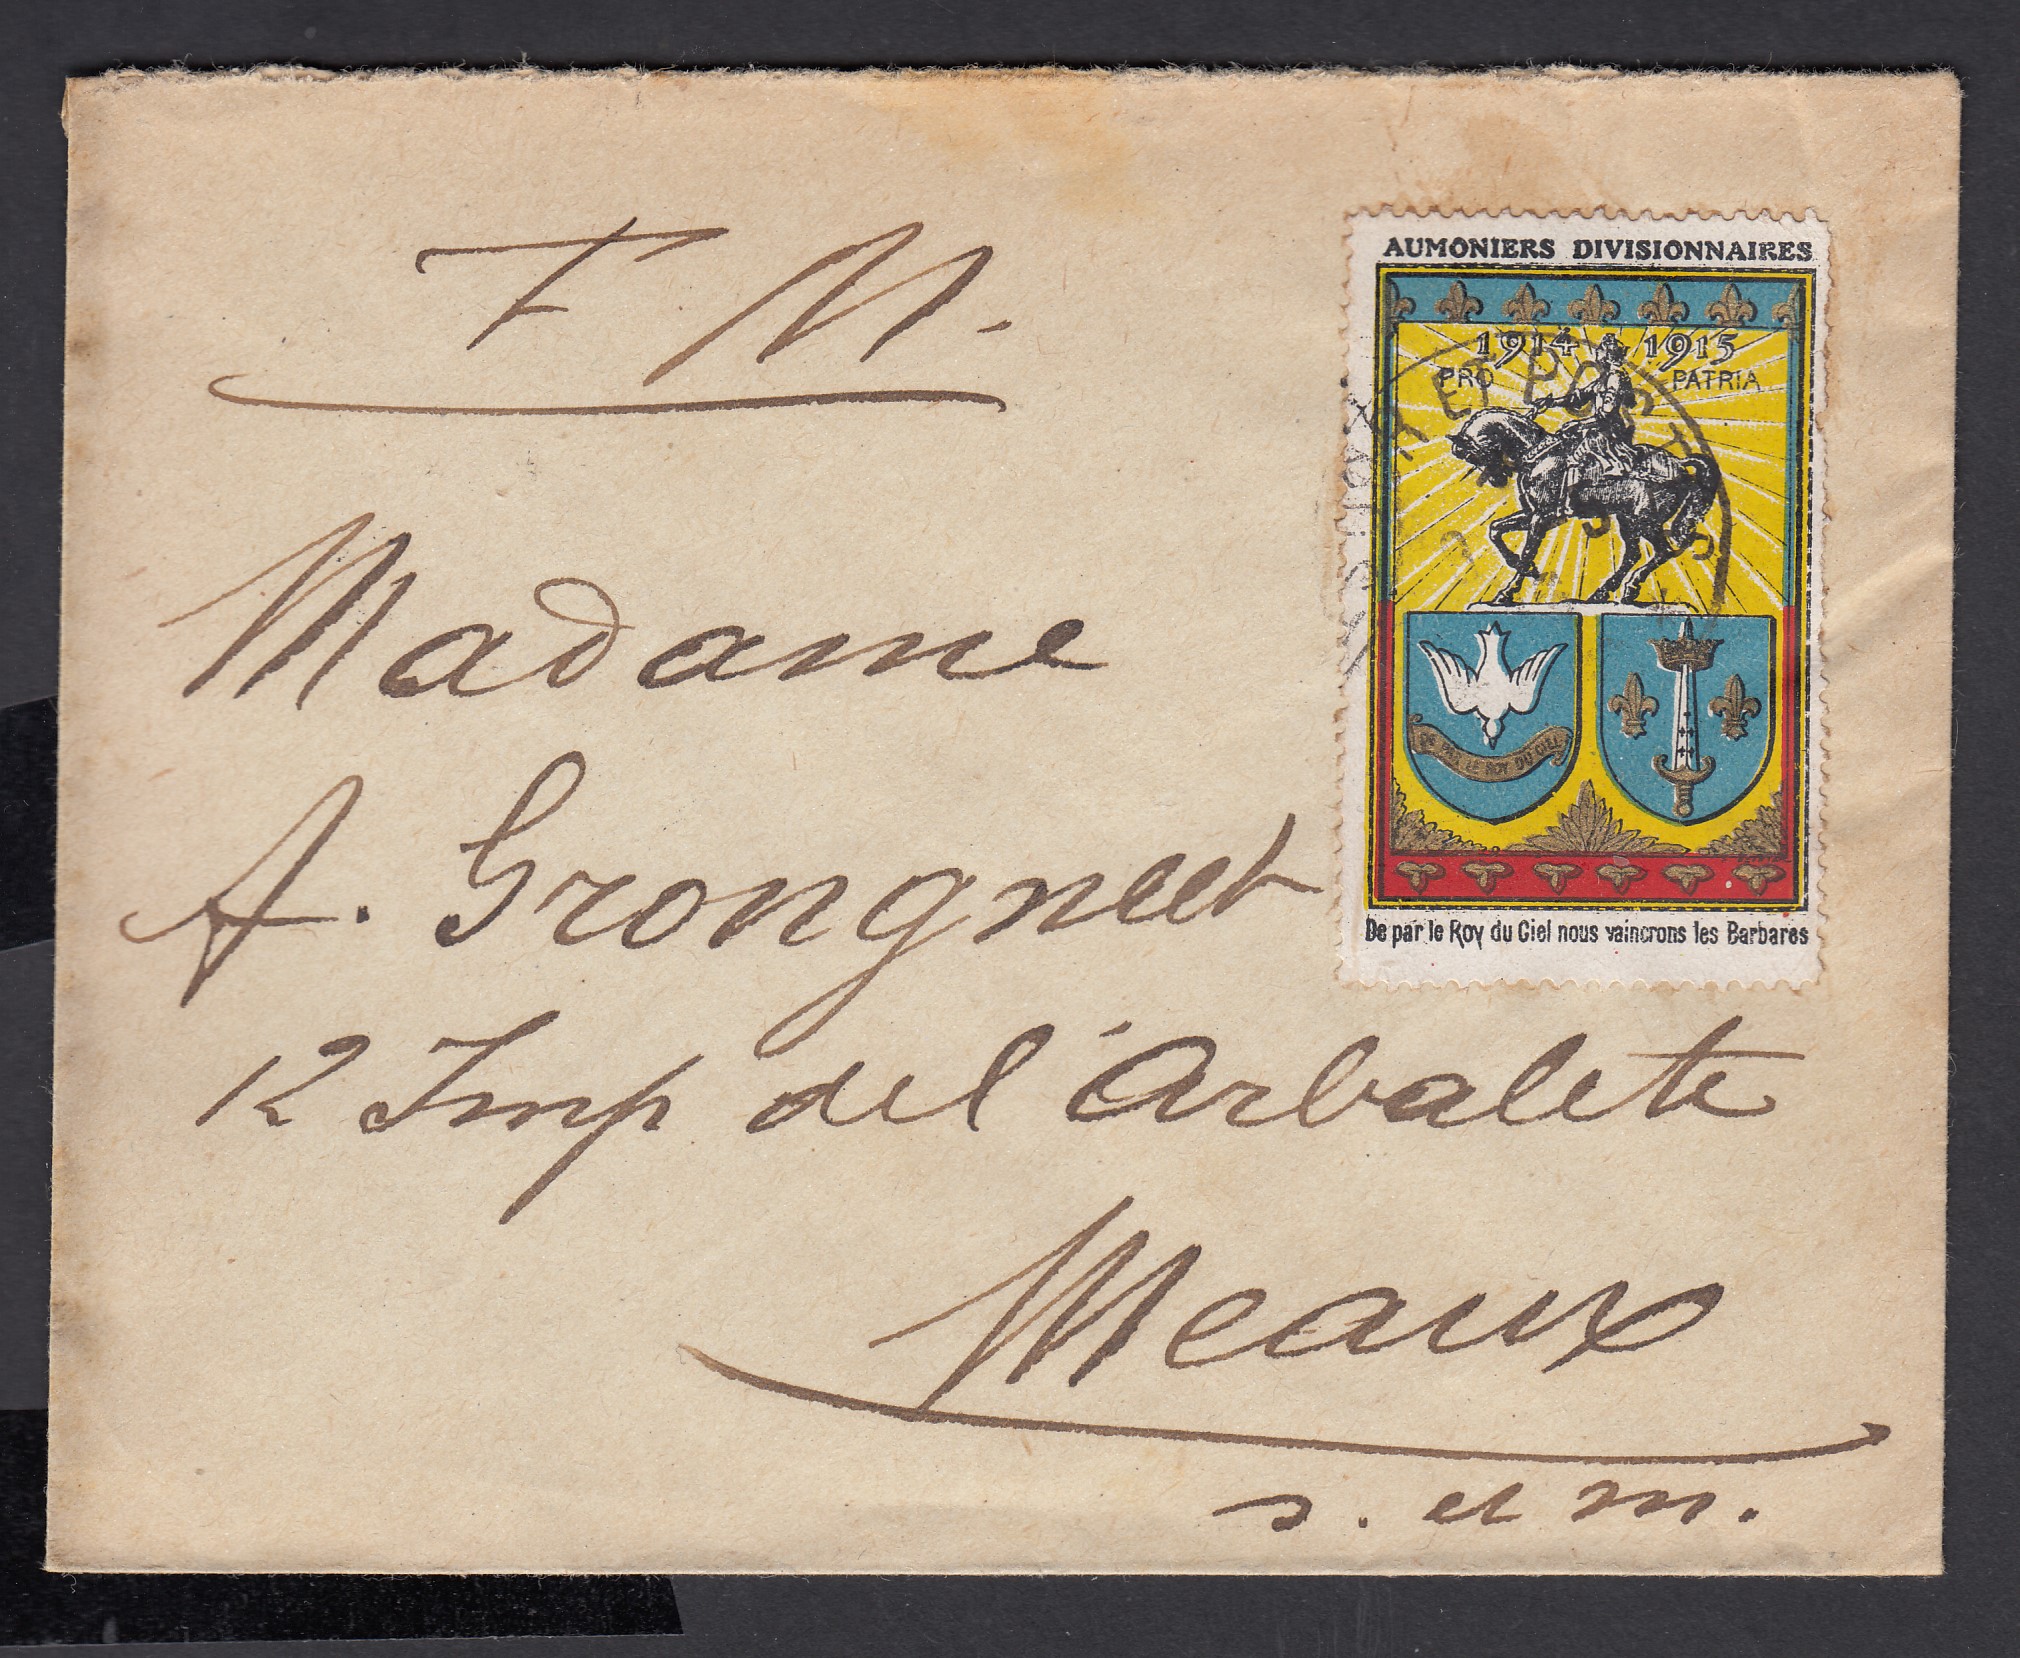 F. M.
Madame
A. Grongneet
12 Imp de l'Arbalete
Meaux
s. et m.
AUMONIERS DIVISIONNAIRES
1914 1915
PRO PATRIA
ET POSTES
DE PAR LE ROY DU CIEL
De par le Roy du Ciel nous vaincrons les Barbares